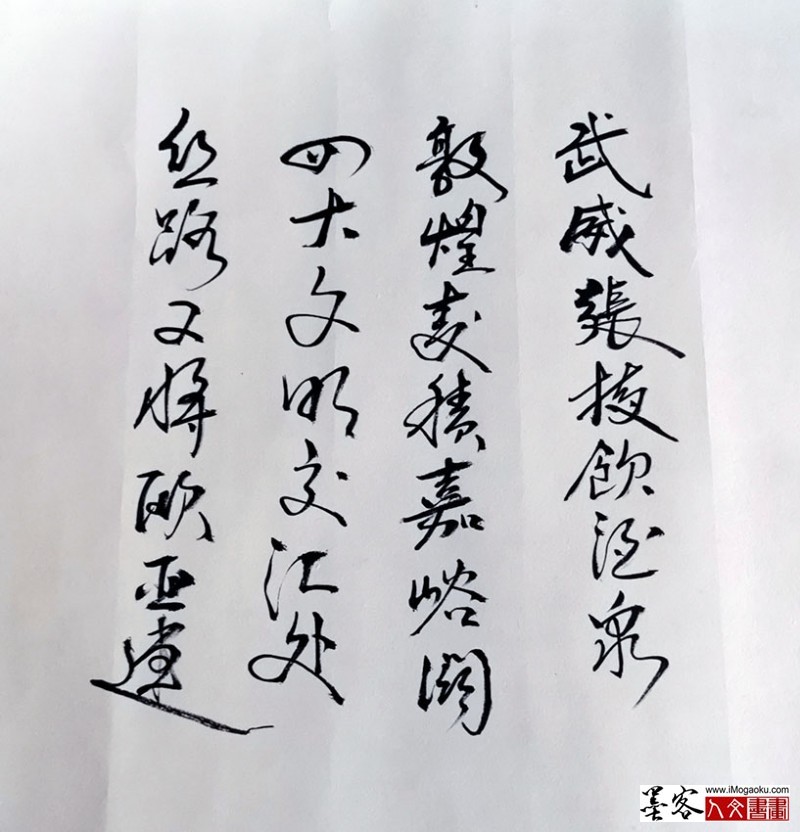 武威張掖飲酒泉
敦煌麦積嘉峪關
四大文明交汇处
丝路又将欧亚連
墨客
www.iMogaoku.com
人文書畫